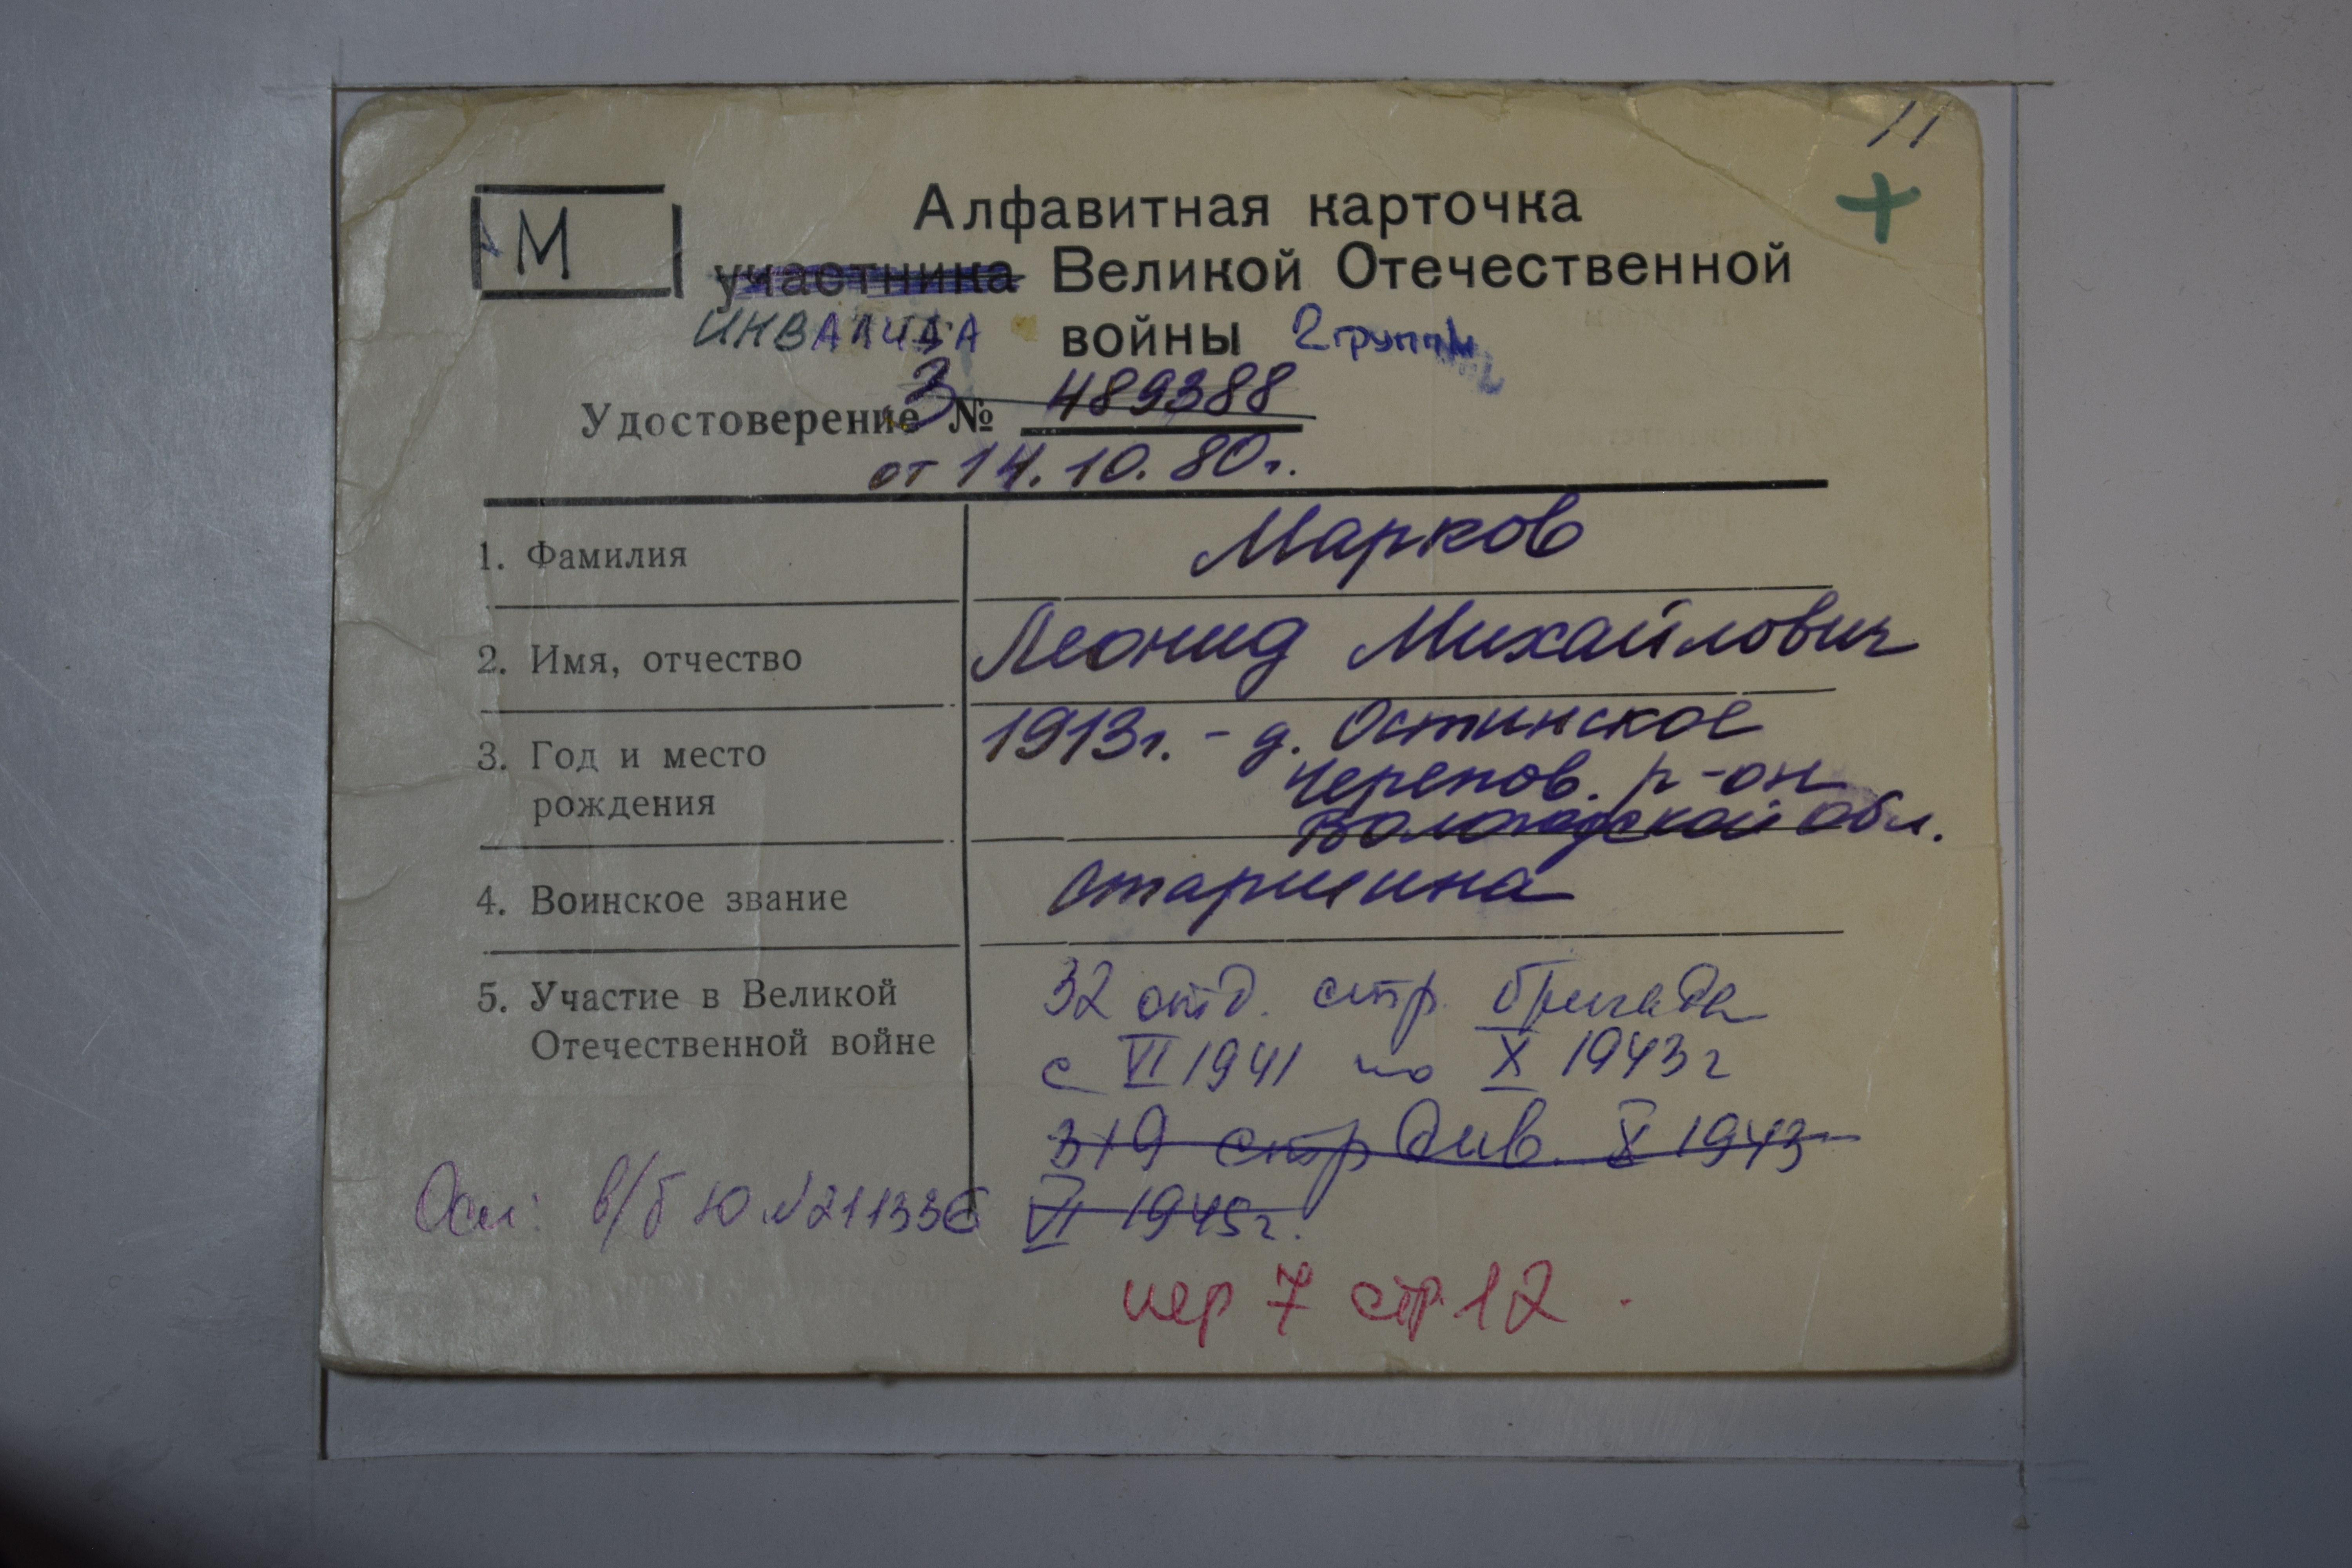 11
+
М
Алфавитная карточка
участника Великой Отечественной
ИНВАЛИДА войны 2 группы
Удостоверение З № 489388
от 14.10.80г.
1. Фамилия Марков
2. Имя, отчество Леонид Михайлович
3. Год и место рождения 1913г. - д. Остинское
Черепов. р-он
Вологодской обл.
4. Воинское звание старшина
5. Участие в Великой Отечественной войне 32 отд. стр. бригада
с VI 1941 по X 1943г
319 стр див. X 1943
VI 1945г.
Осн: в/б Ю №211336
пер 7 стр 12